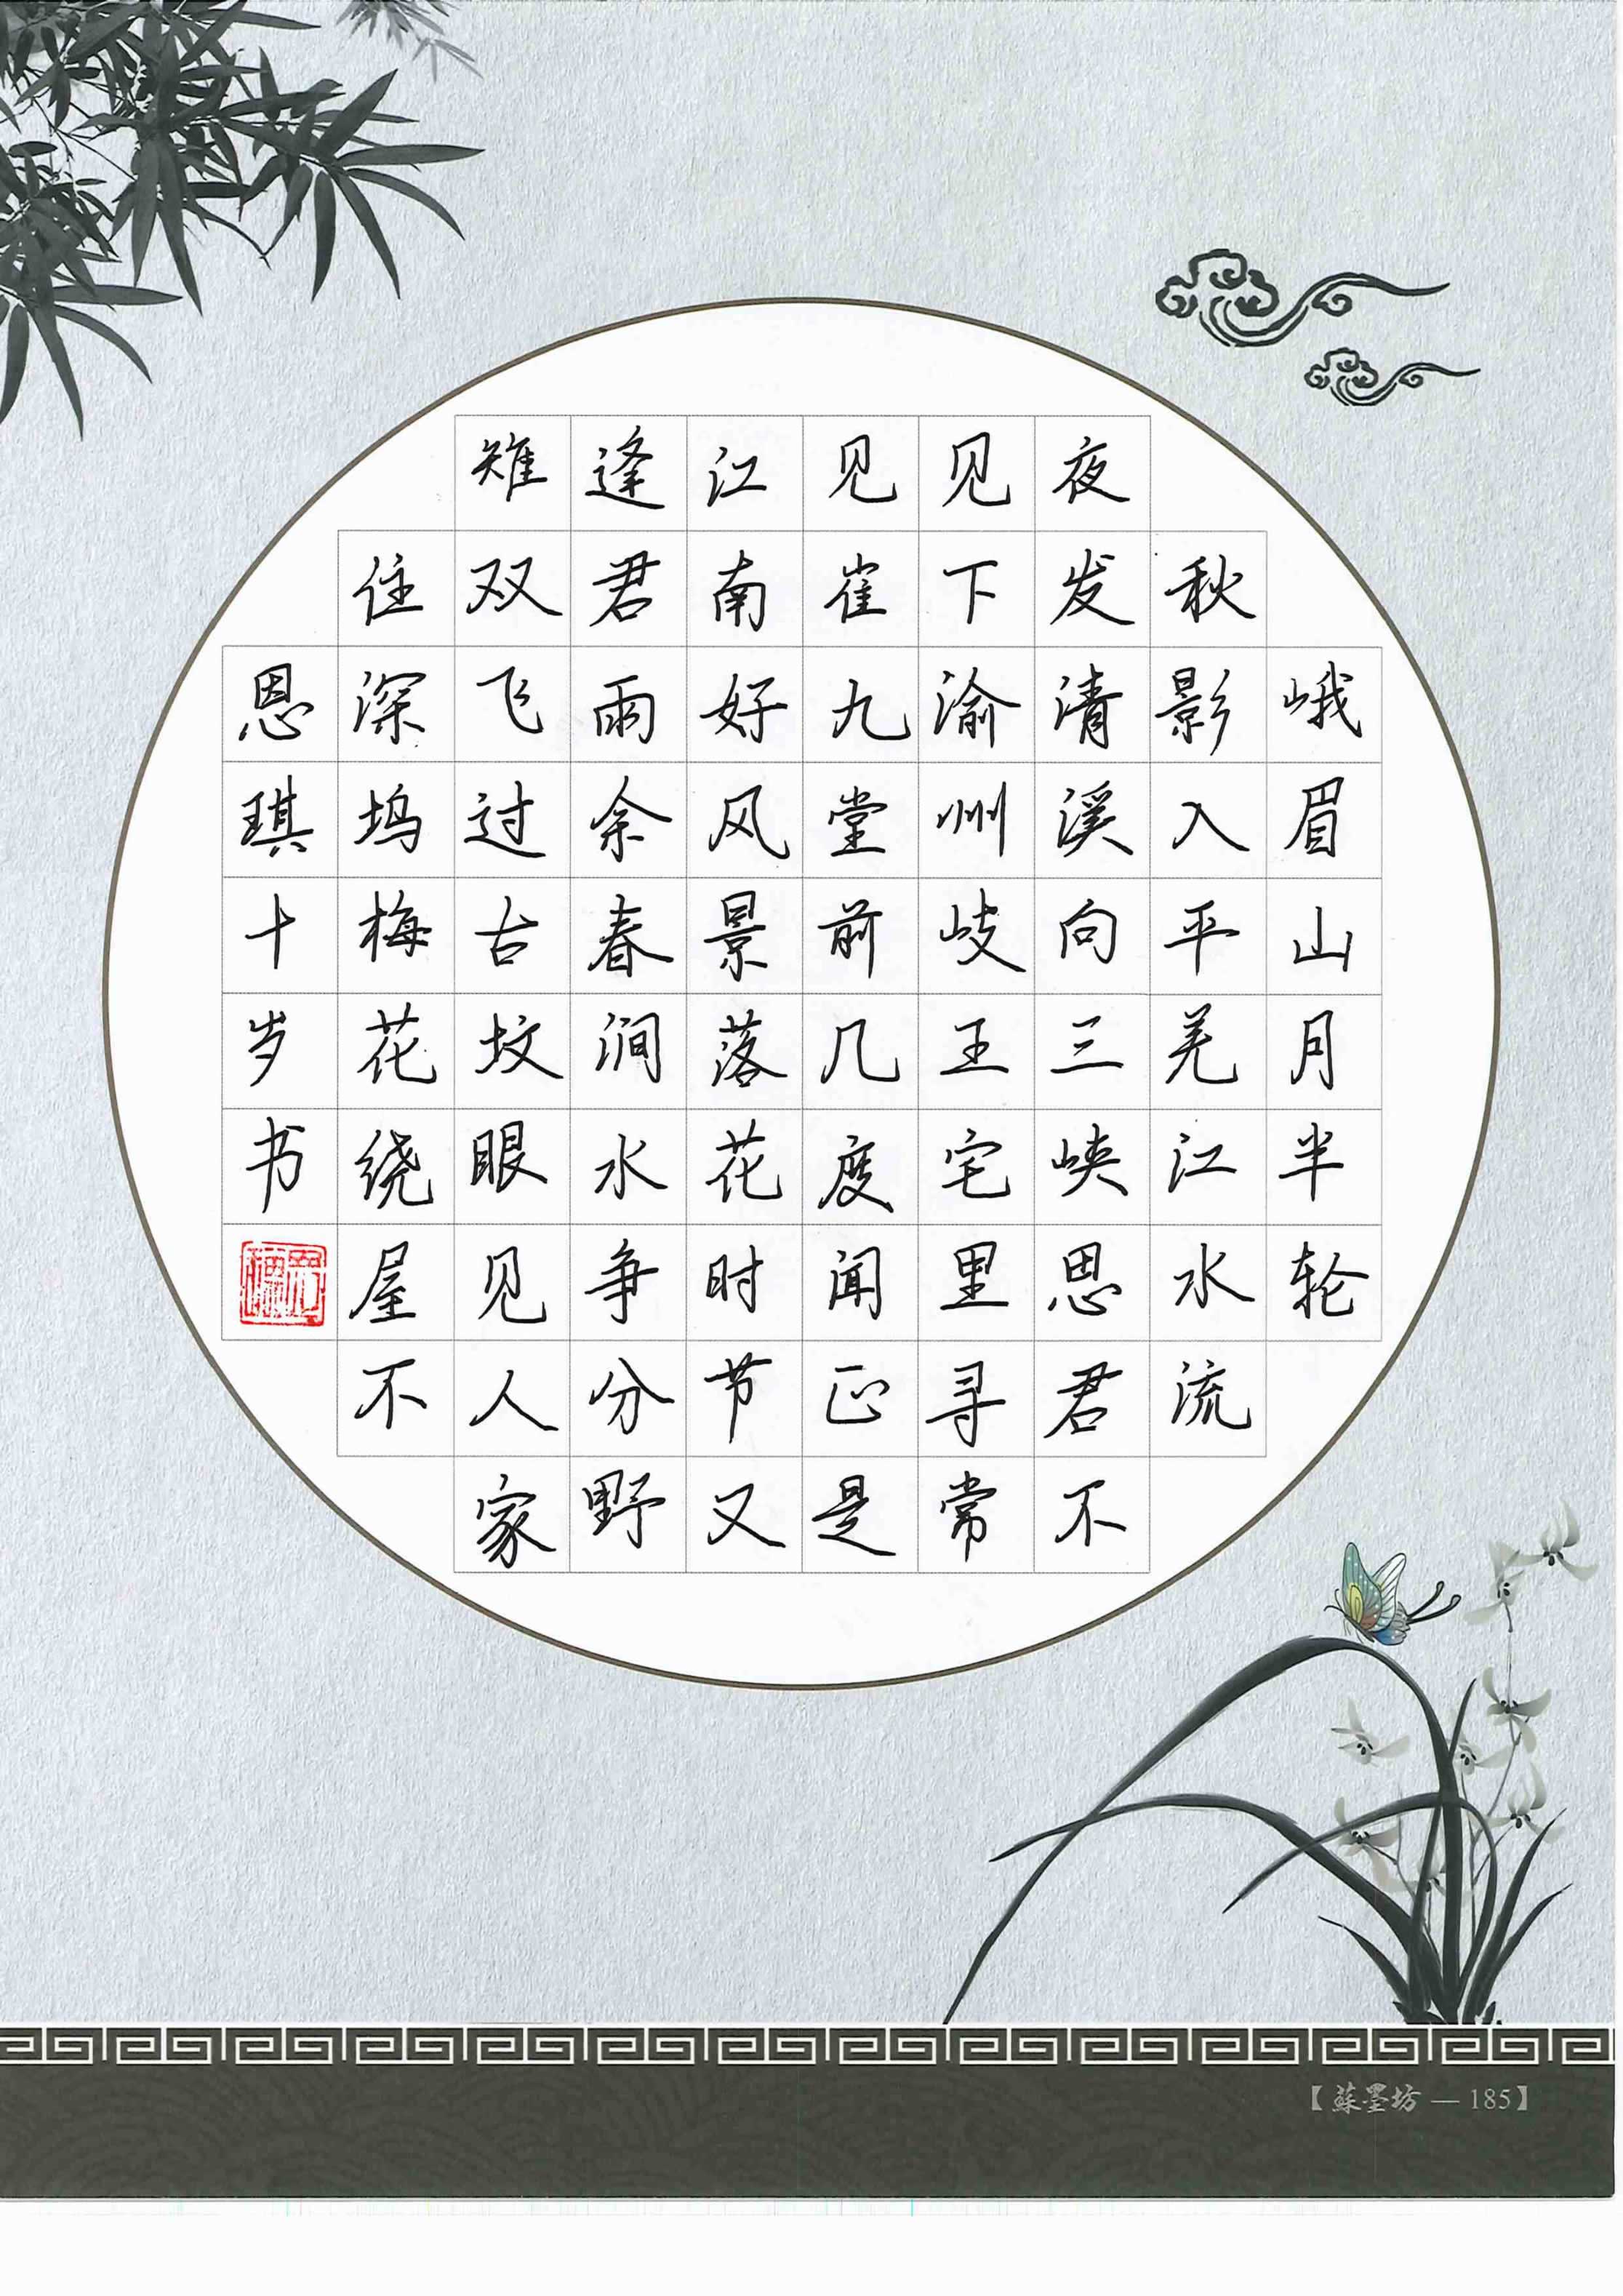 峨眉山月半轮
秋影入平羌江水流
夜发清溪向三峡思君不
见下渝州岐王宅里寻常
见崔九堂前几度闻正是
江南好风景落花时节又
逢君雨余春涧水争分野
雉双飞过古坟眼见人家
住深坞梅花绕屋不
恩琪十岁书
【蘇墨坊 — 185】